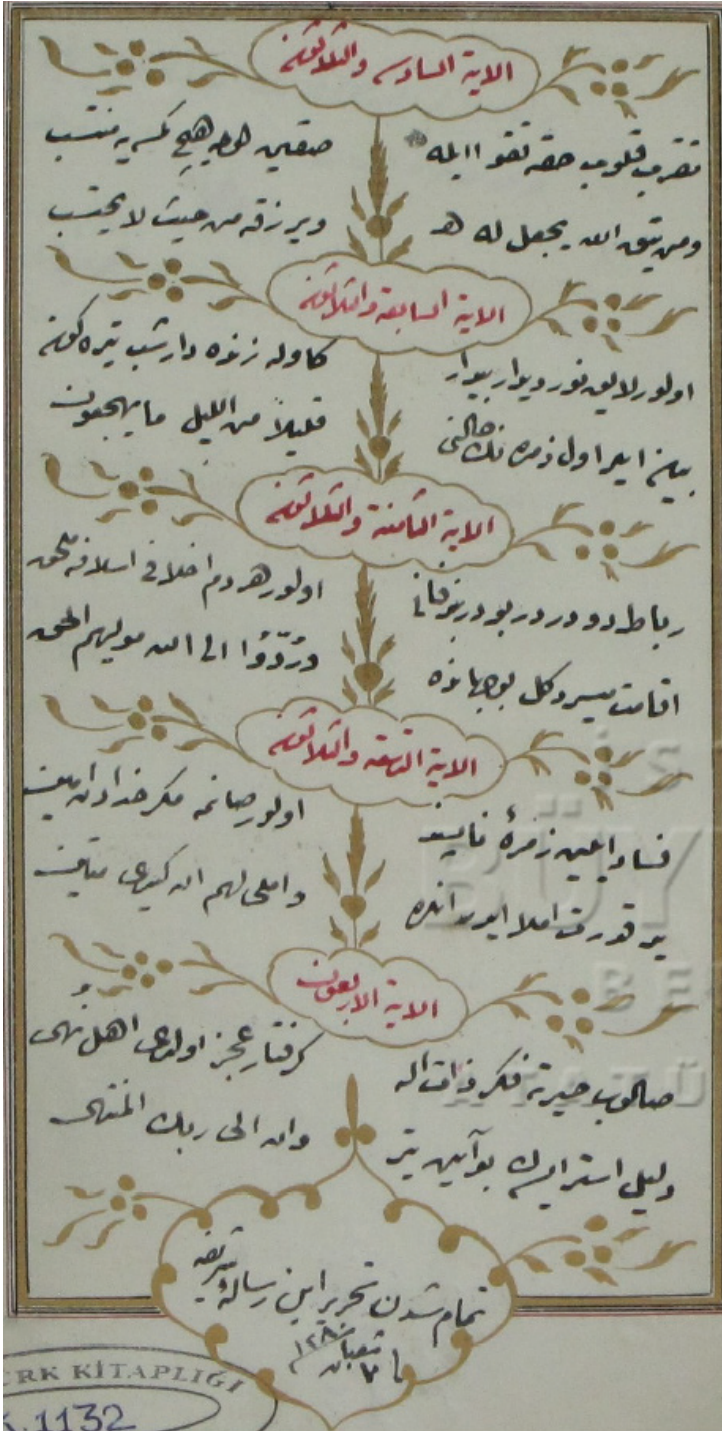 الایة السادسه والثلاثون
تقرب قلوب حقه تقوا ایله
صقین اولمه هیچ کمسیه منتسب
ومن یتق الله یجعل له هـ
ویرزقه من حیث لا یحتسب
الایة السابعة والثلاثون
اولور لایق نور دیدار بیدار
که اوله زنده دار شب تیره کون
بیان ایدر اول زمره نك حالنی
قلیلاً من اللیل ما یهجعون
الایة الثامنة والثلاثون
رباط دو در در بو در فانی
اولور هر دم اخلافی اسلافه ملحق
اقامت میسر دکل بو جهانده
ورُدّوُا الی الله مولیهم الحق
الایة التاسعة والثلاثون
فساد ایلین زمرهٔ ناپسند
اولور صانمه مکر خدادن امین
یر قدرت املا ایدر انلره
واملی لهم ان کیدی متین
الایة الاربعون
صالوب حیرته فکر ذات اله
کرفتار عجز اولدی اهل نُهی
دلیل استرایسك بو آیت یتر
وان الی ربك المنتهی
تمام شدن تحریر این رسالهٔ شریفه
شعبان ١٢٨٠
٧
RK KİTAPLIĞI
K.1132
İS
BÜY
BE
ATATÜ